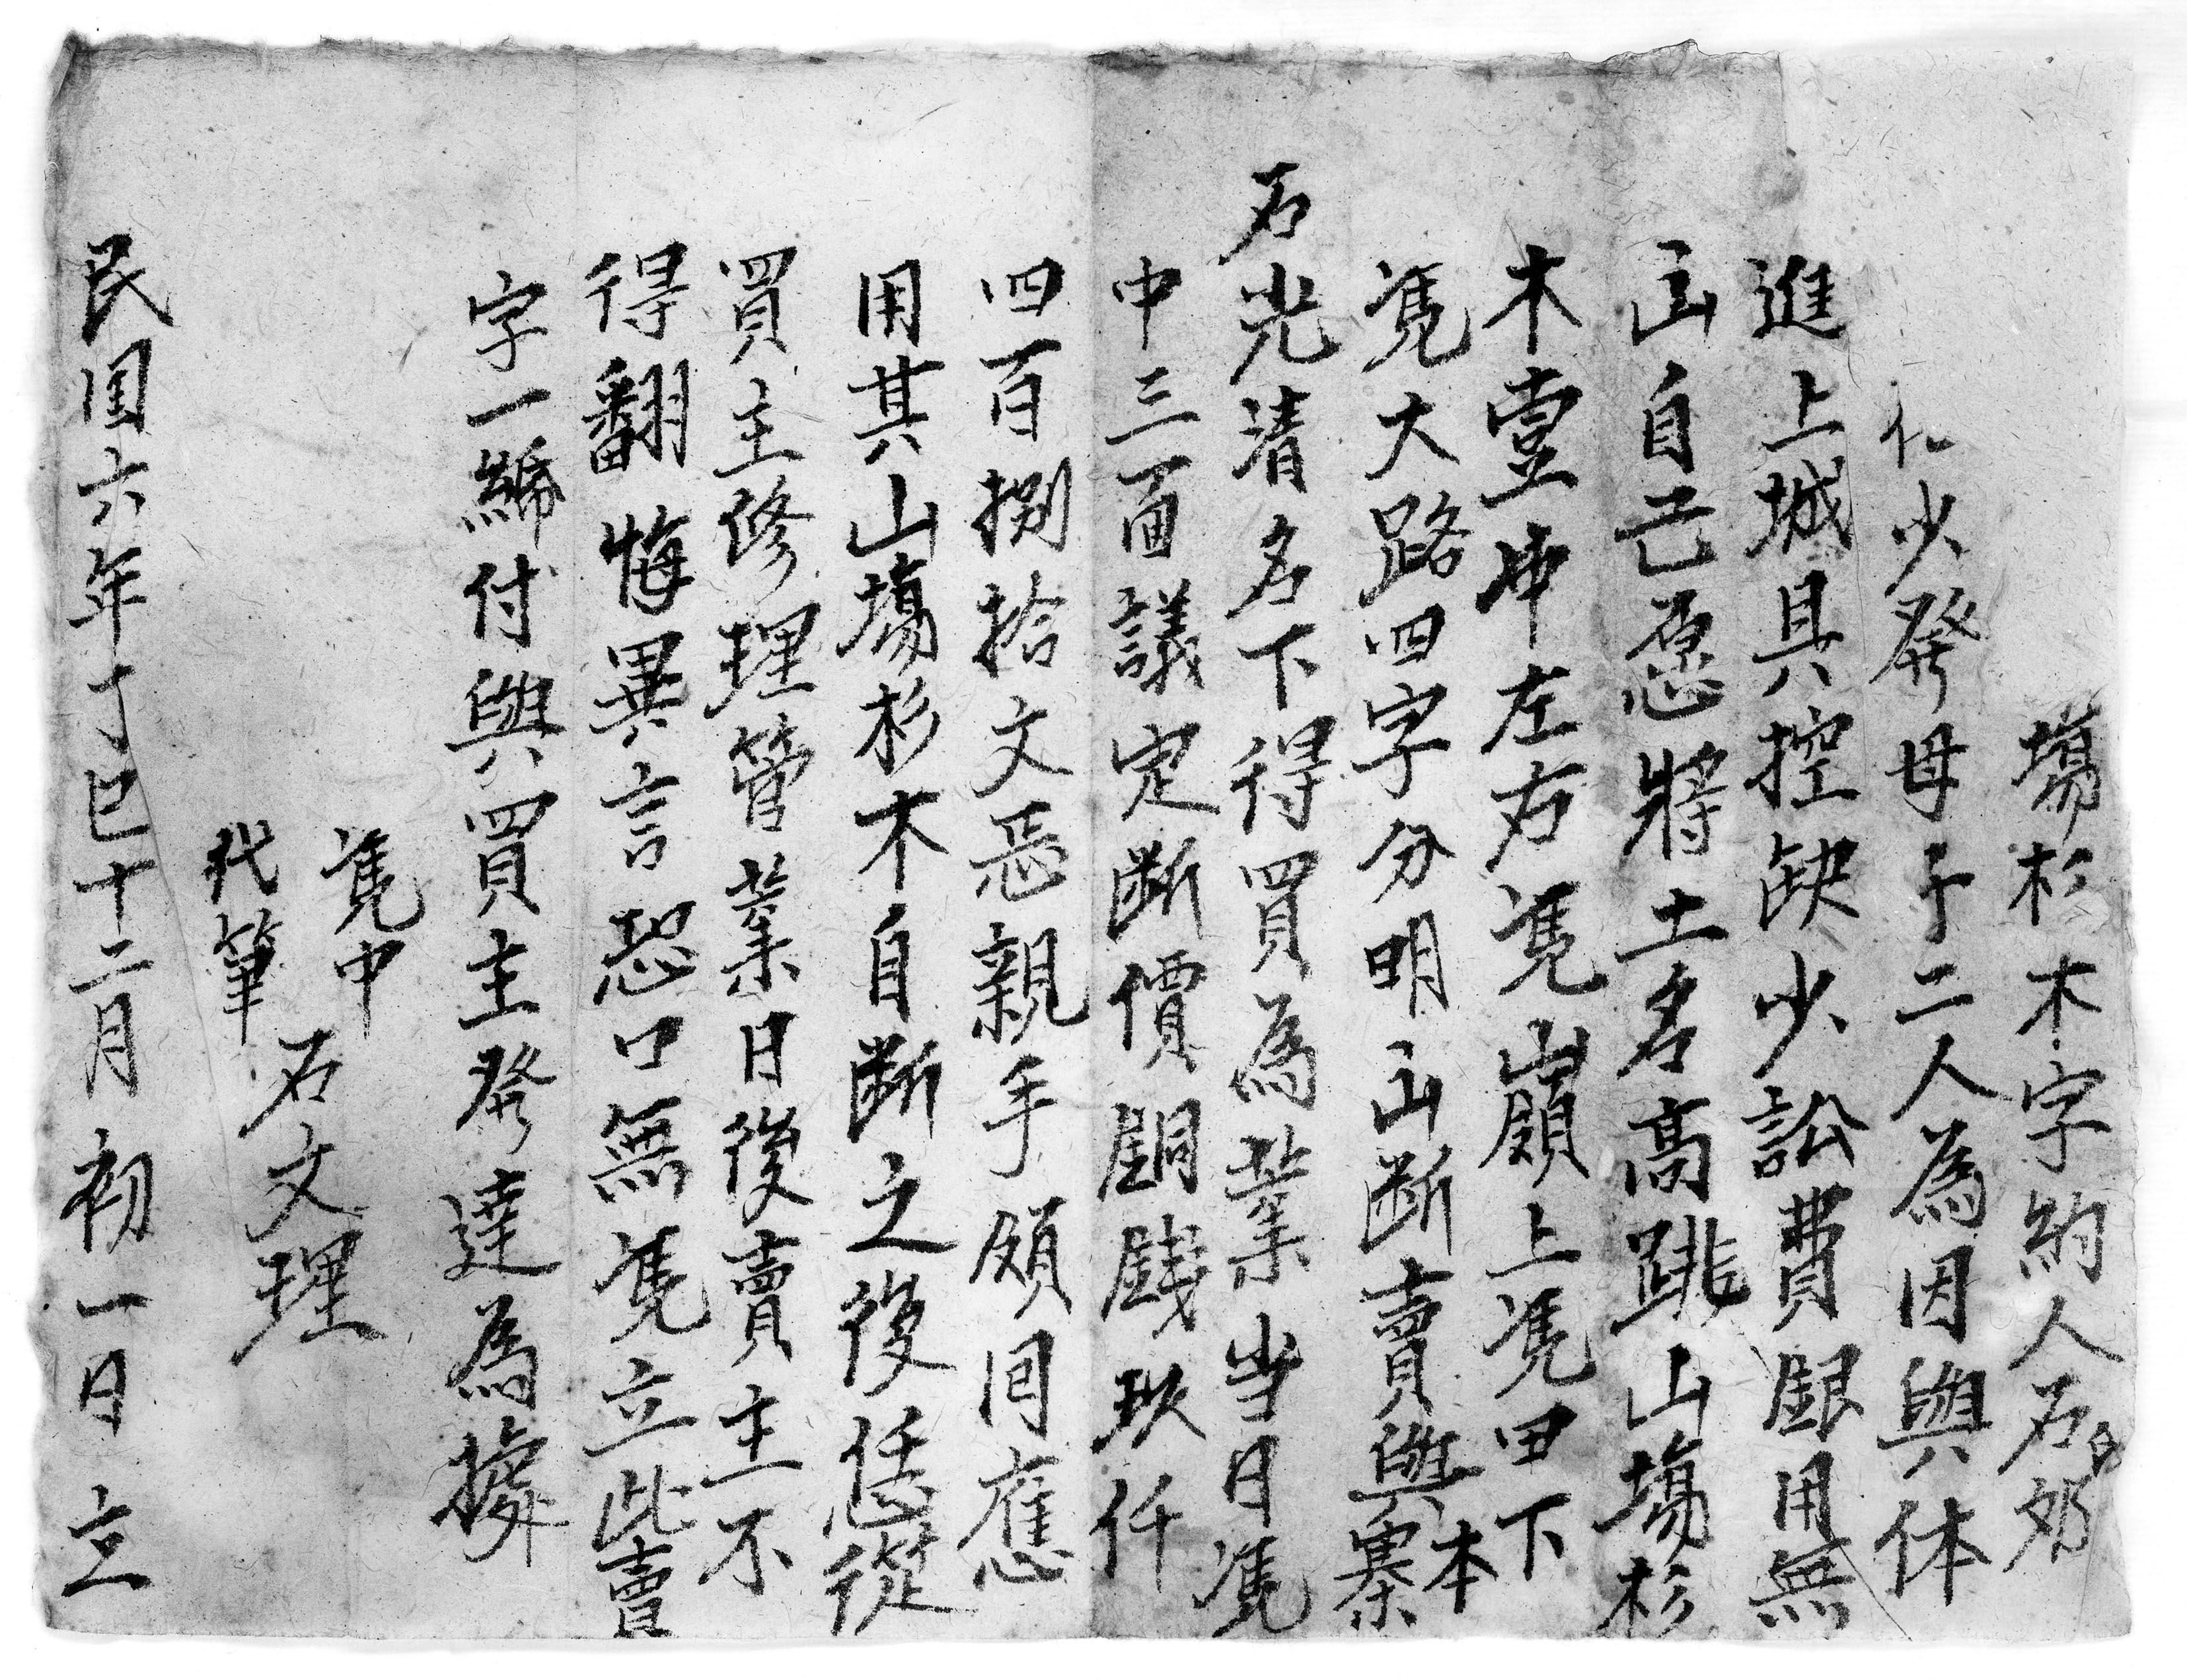 場杉木字約人石
仁少發母子二人為因與体
進上城具控缺少訟費銀用無
出自己愿將土名高跳山場杉
木壹冲左右凴嶺上凴田下
凴大路四字分明出断賣與本寨
石光清名下得買為業当日凴
中三面議定断價銅錢玖仟
四百捌拾文丞親手領囘應
用其山場杉木自断之後恁從
買主修理管業日後賣主不
得翻悔異言恐口無凴立此賣
字一䋲付與買主發達為據
凴中
石文理
代筆
民国六年丁巳十二月初一日立